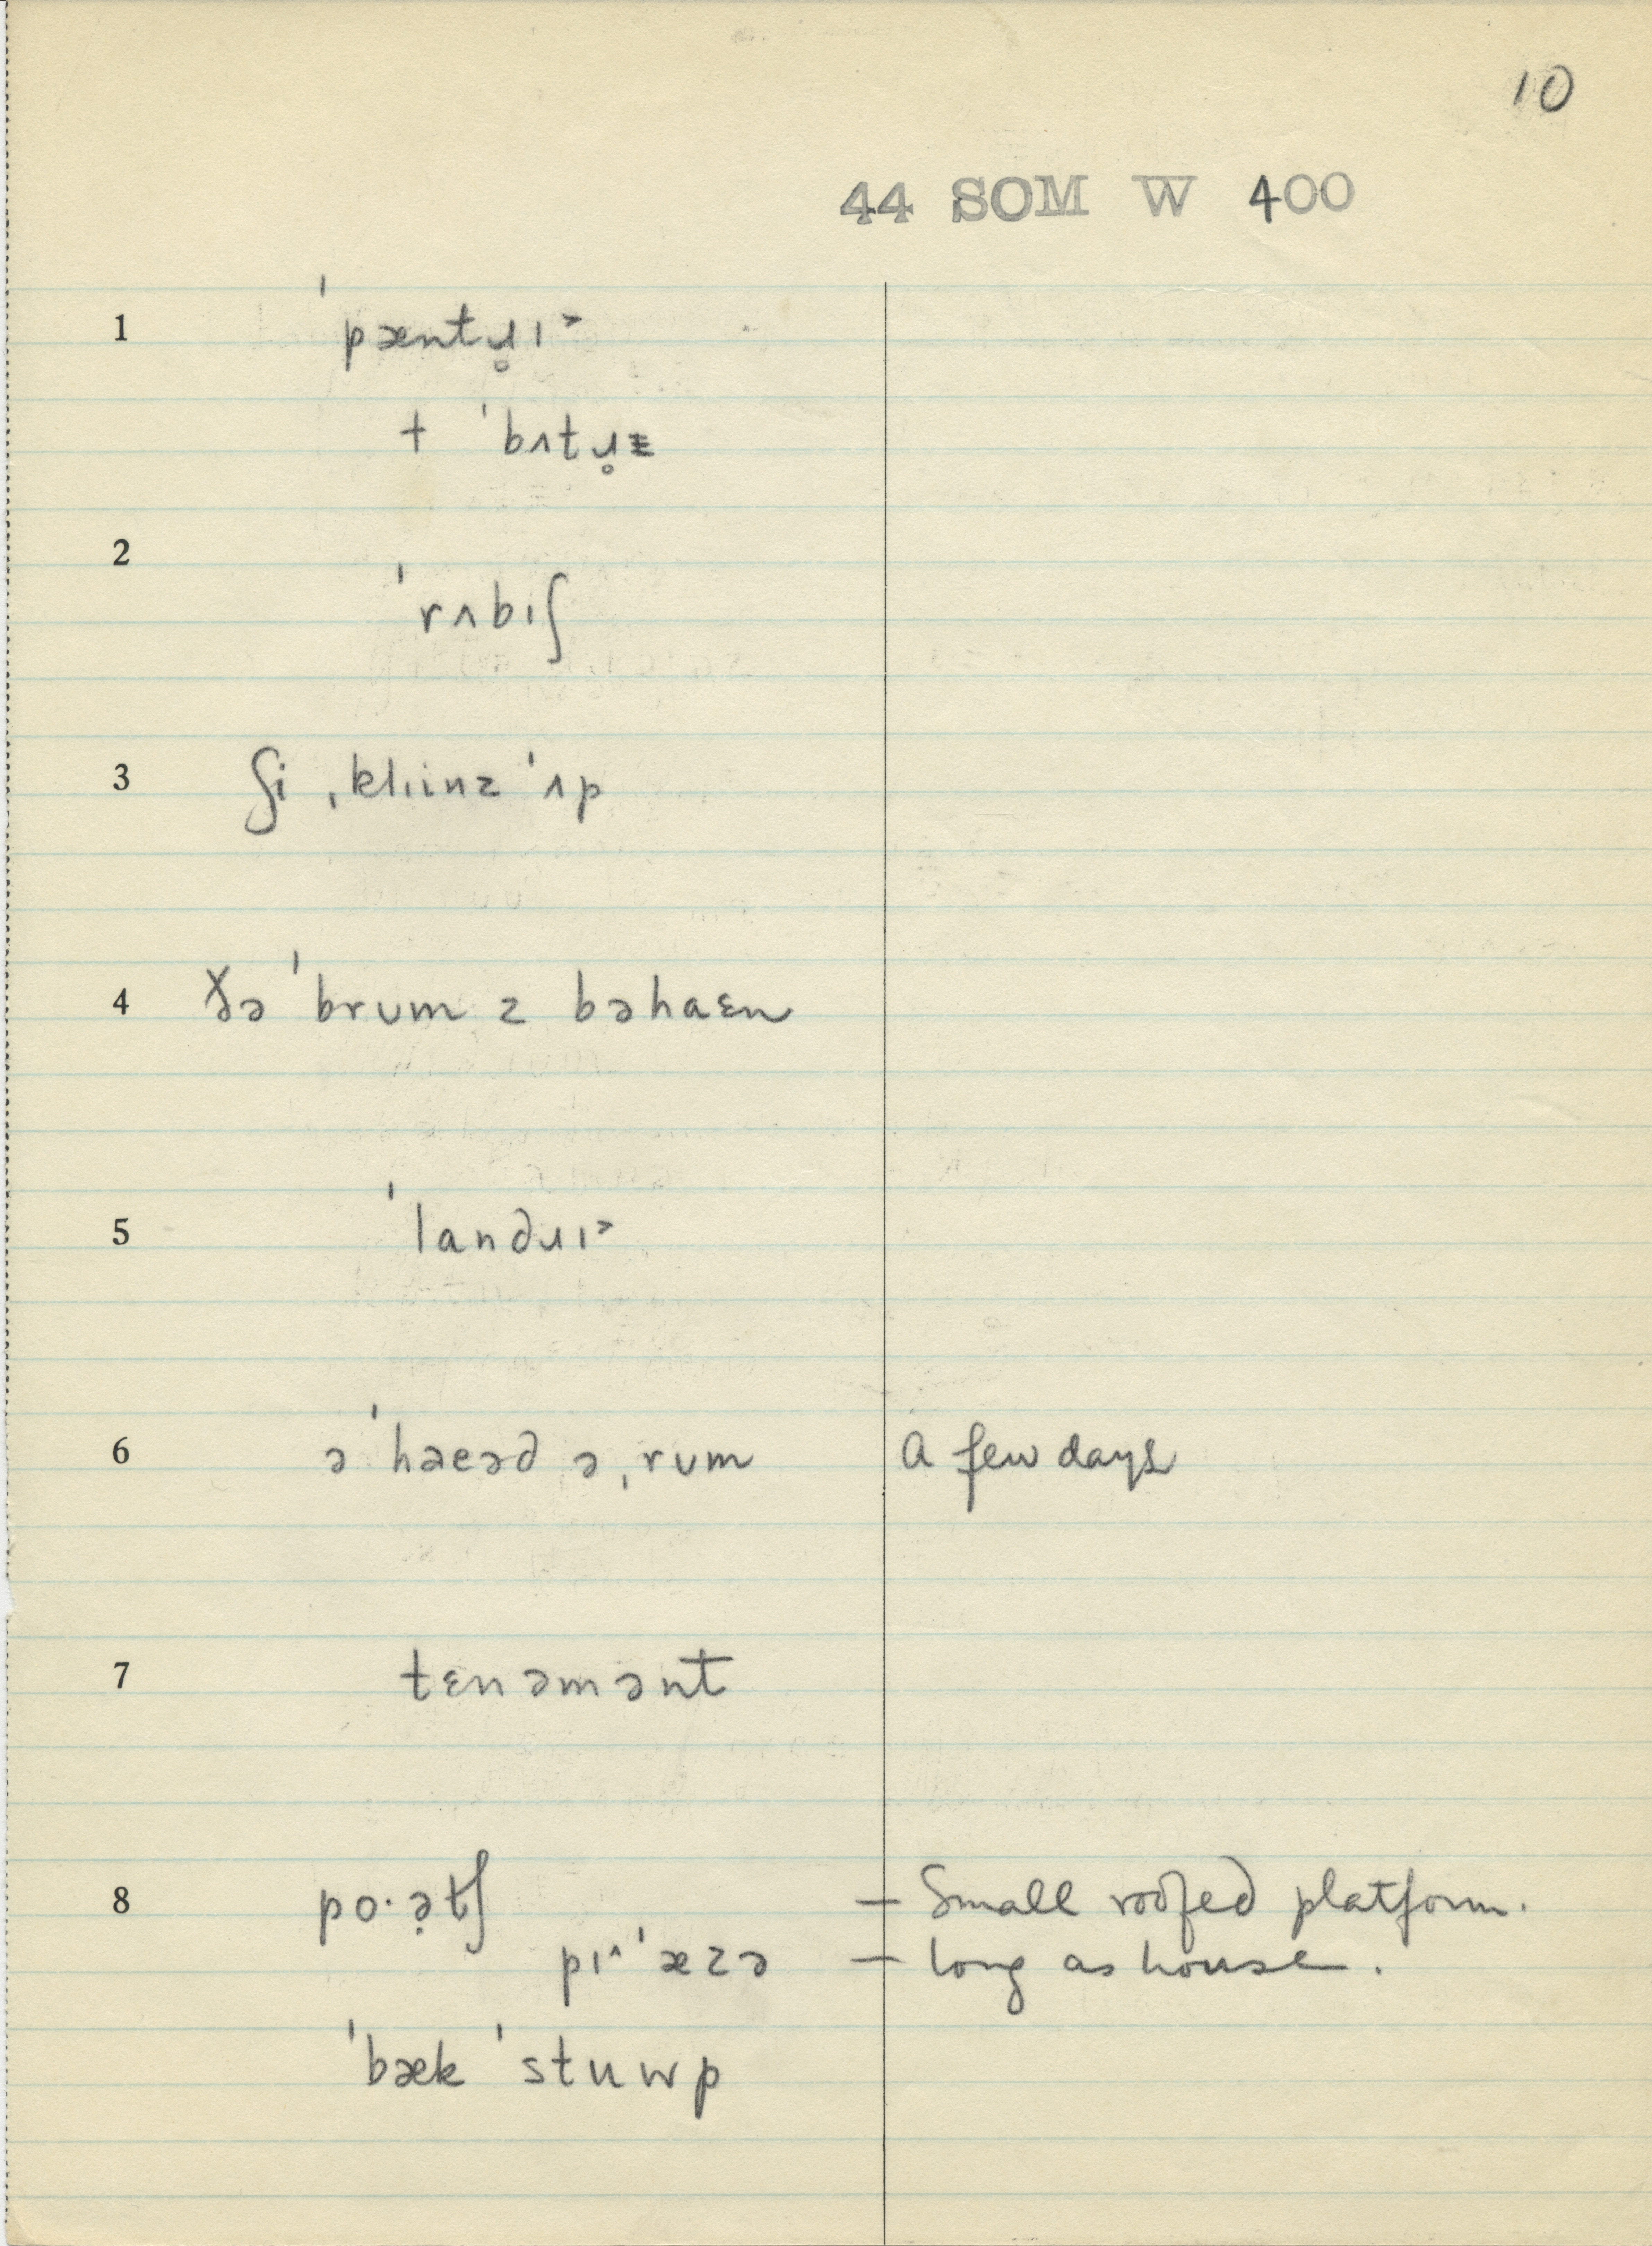 10
44 SOM W 400
1 ˈpæntɹ̥ɪ˃
+ ˈbʌtɹ̥ɪz
2 ˈrʌbɪʃ
3 ʃi ˌklɪinz ˈʌp
4 ðə ˈbrʊm z bəhaɛn
5 ˈlandɹɪ˃
6 ə ˈhaeəd ə ˌrʊm A few days
7 tɛnəmənt
8 po·ə̣tʃ – Small roofed platform.
pɪ^ ˈæzə – long as house.
ˈbæk ˈstuwp